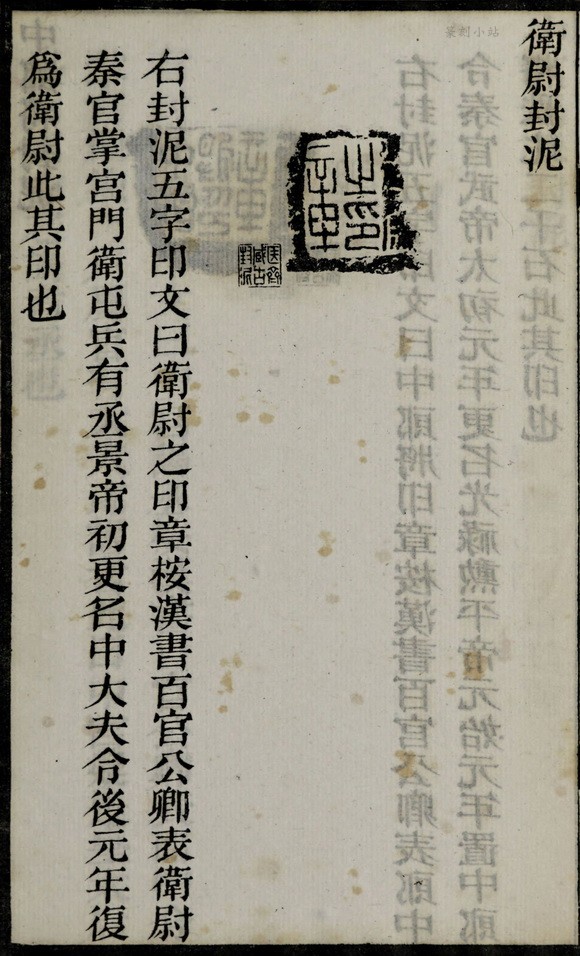 篆刻小站
衛尉封泥
右封泥五字印文曰衛尉之印章桉漢書百官公卿表衛尉
秦官掌宮門衛屯兵有丞景帝初更名中大夫令後元年復
爲衛尉此其印也